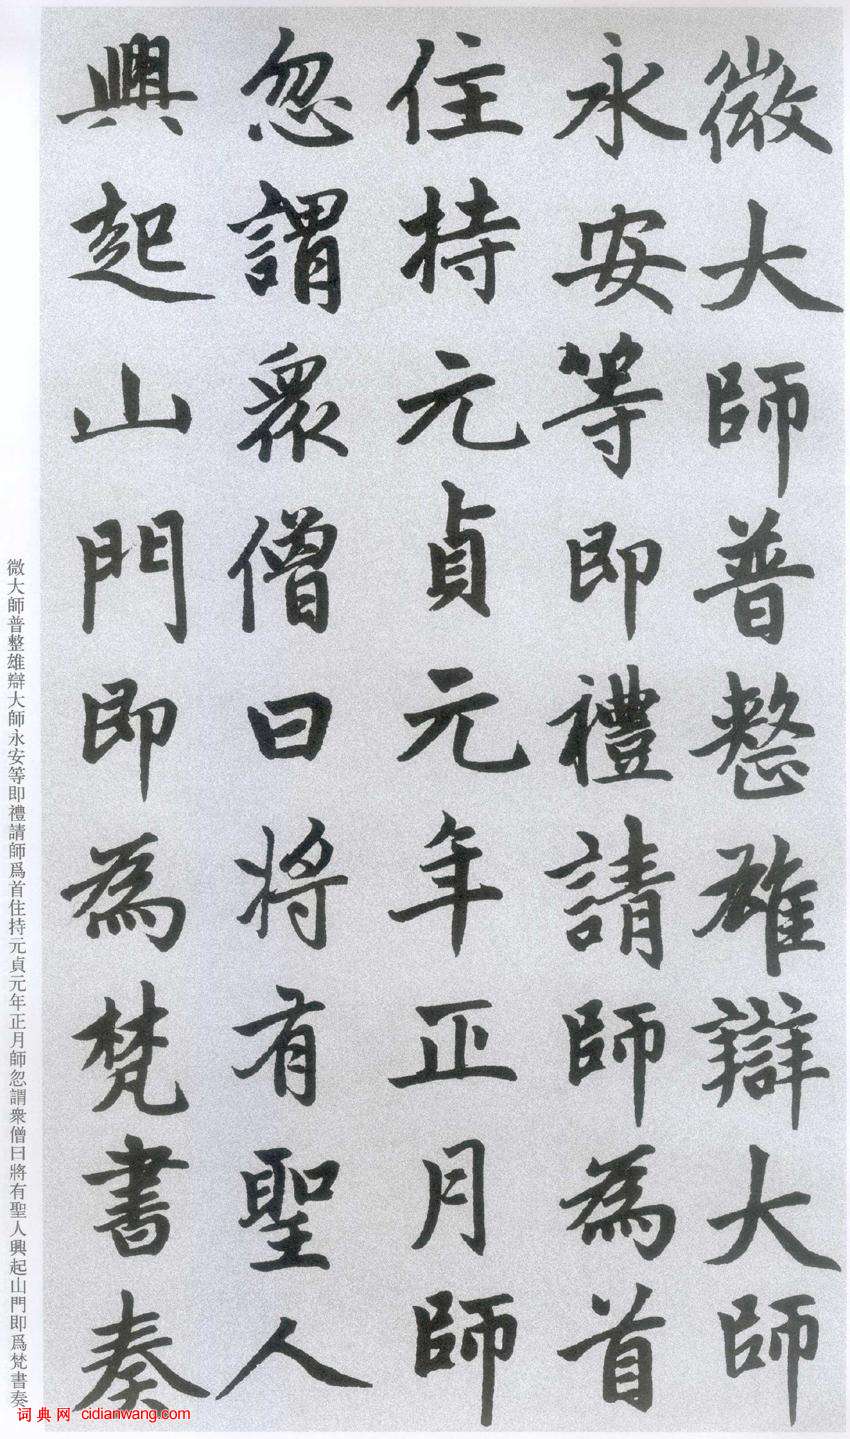 微大師普整雄辯大師
永安等即禮請師為首
住持元貞元年正月師
忽謂眾僧曰將有聖人
興起山門即為梵書奏
微大師普整雄辯大師永安等即禮請師爲首住持元貞元年正月師忽謂衆僧曰將有聖人興起山門即爲梵書奏
词典网 cidianwang.com